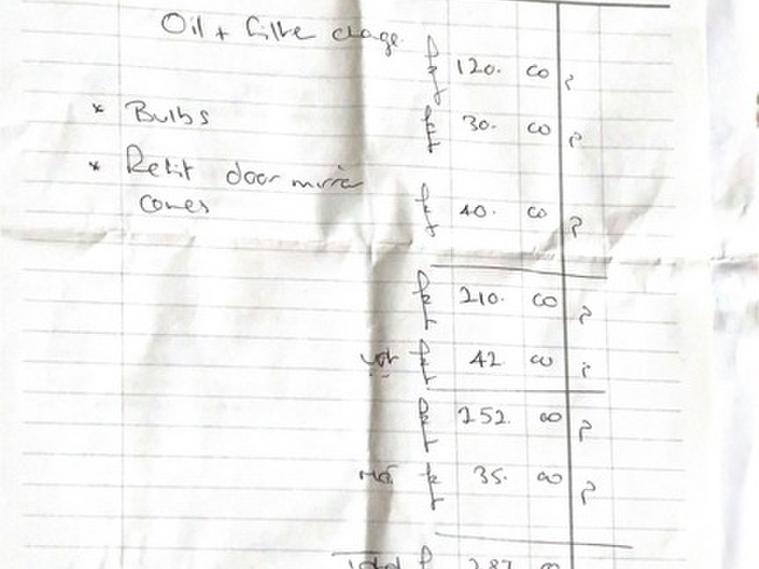 Oil + Filte chage £ 120. 00 p
* Bulbs £ 30. 00 p
* Refit door mirror
covers £ 40. 00 p
£ 210. 00 p
vat £ 42 00 p
£ 252. 00 p
£ 35. 00 p
Total £ 287 00